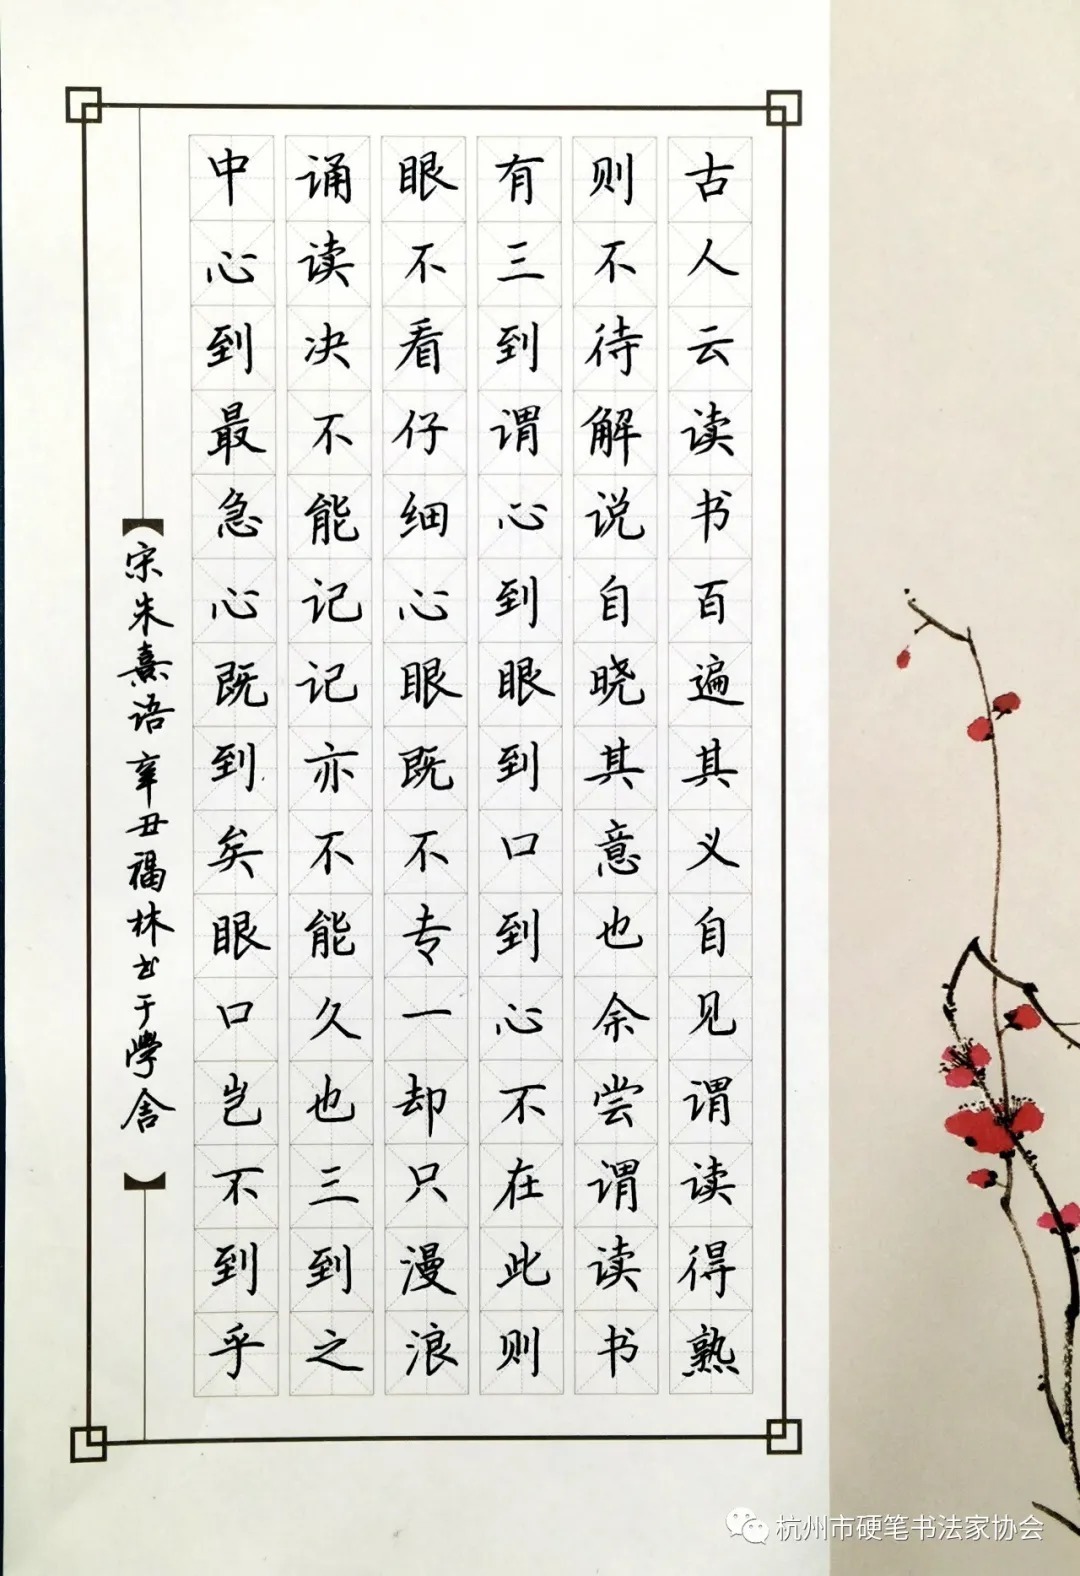 古人云读书百遍其义自见谓读得熟
则不待解说自晓其意也余尝谓读书
有三到谓心到眼到口到心不在此则
眼不看仔细心眼既不专一却只漫浪
诵读决不能记记亦不能久也三到之
中心到最急心既到矣眼口岂不到乎
宋朱熹语辛丑福林书于學舍
杭州市硬笔书法家协会